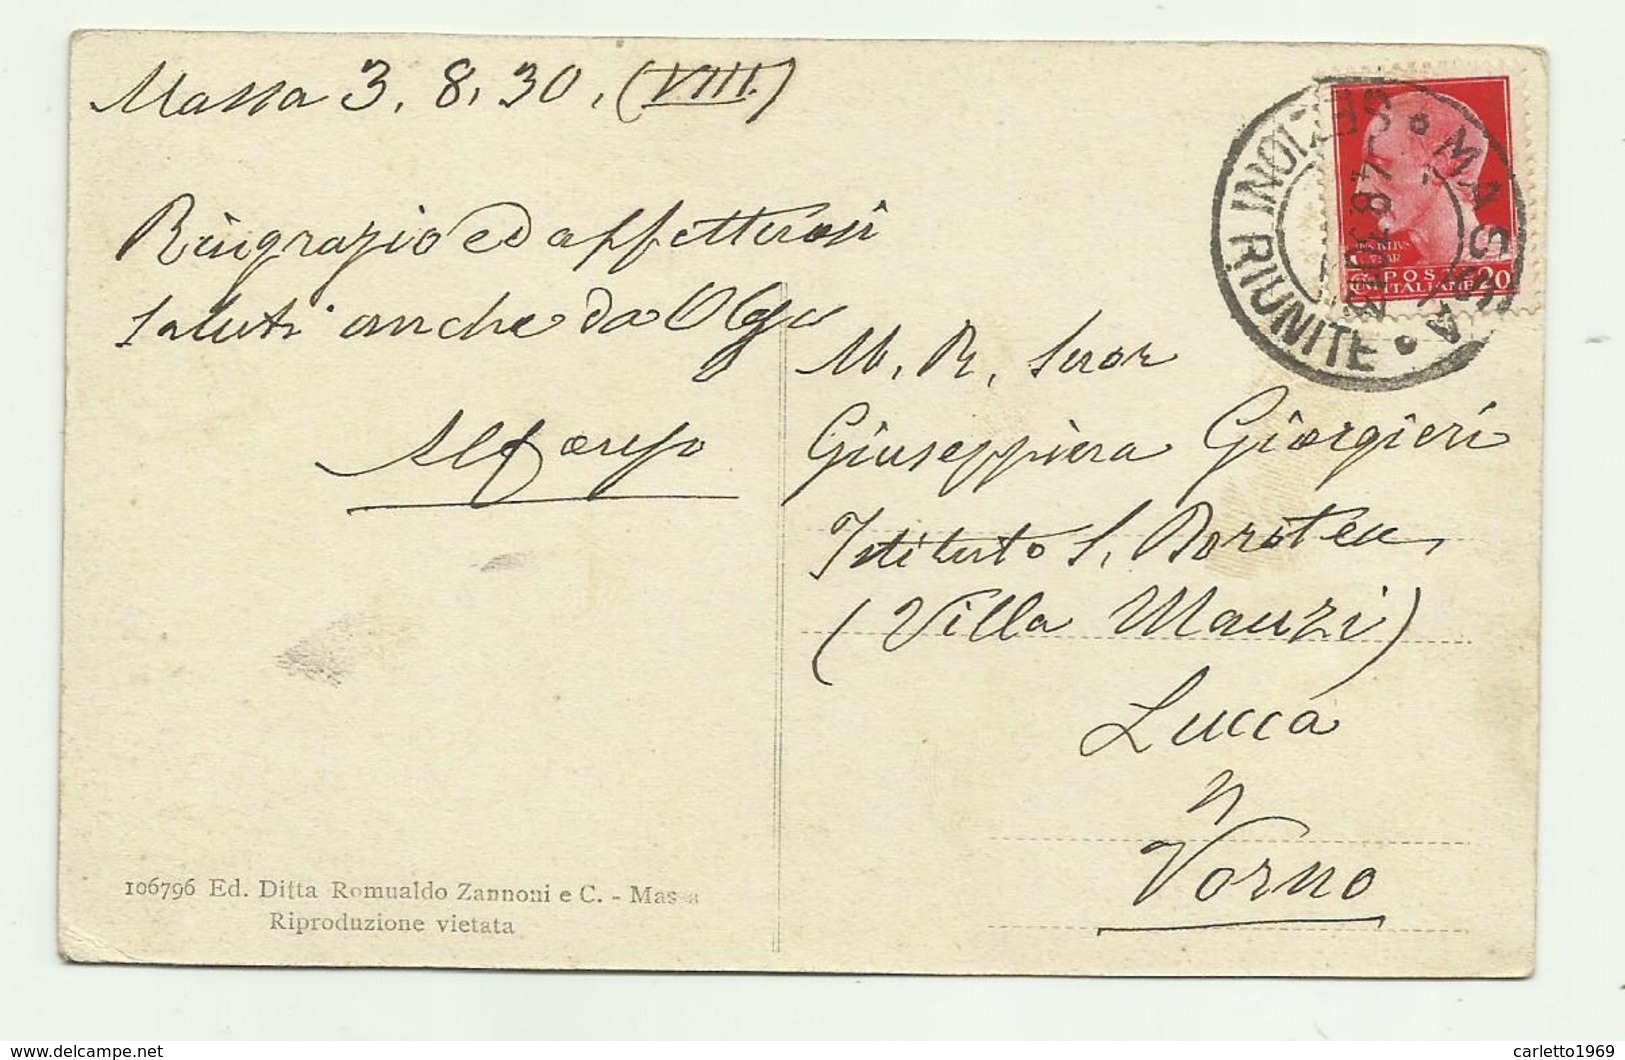 Massa 3. 8. 30. (VIII.)
Ringrazio ed affettuosi
saluti anche da Olga
M. R. Suor
Giuseppina Giorgieri
Istituto S. Dorotea
(Villa Mauzi)
Lucca
Vorno
106796 Ed. Ditta Romualdo Zannoni e C. - Massa
Riproduzione vietata
MASSA
SEZIONI RIUNITE
POSTE
ITALIANE
20
www.delcampe.net
carletto1969